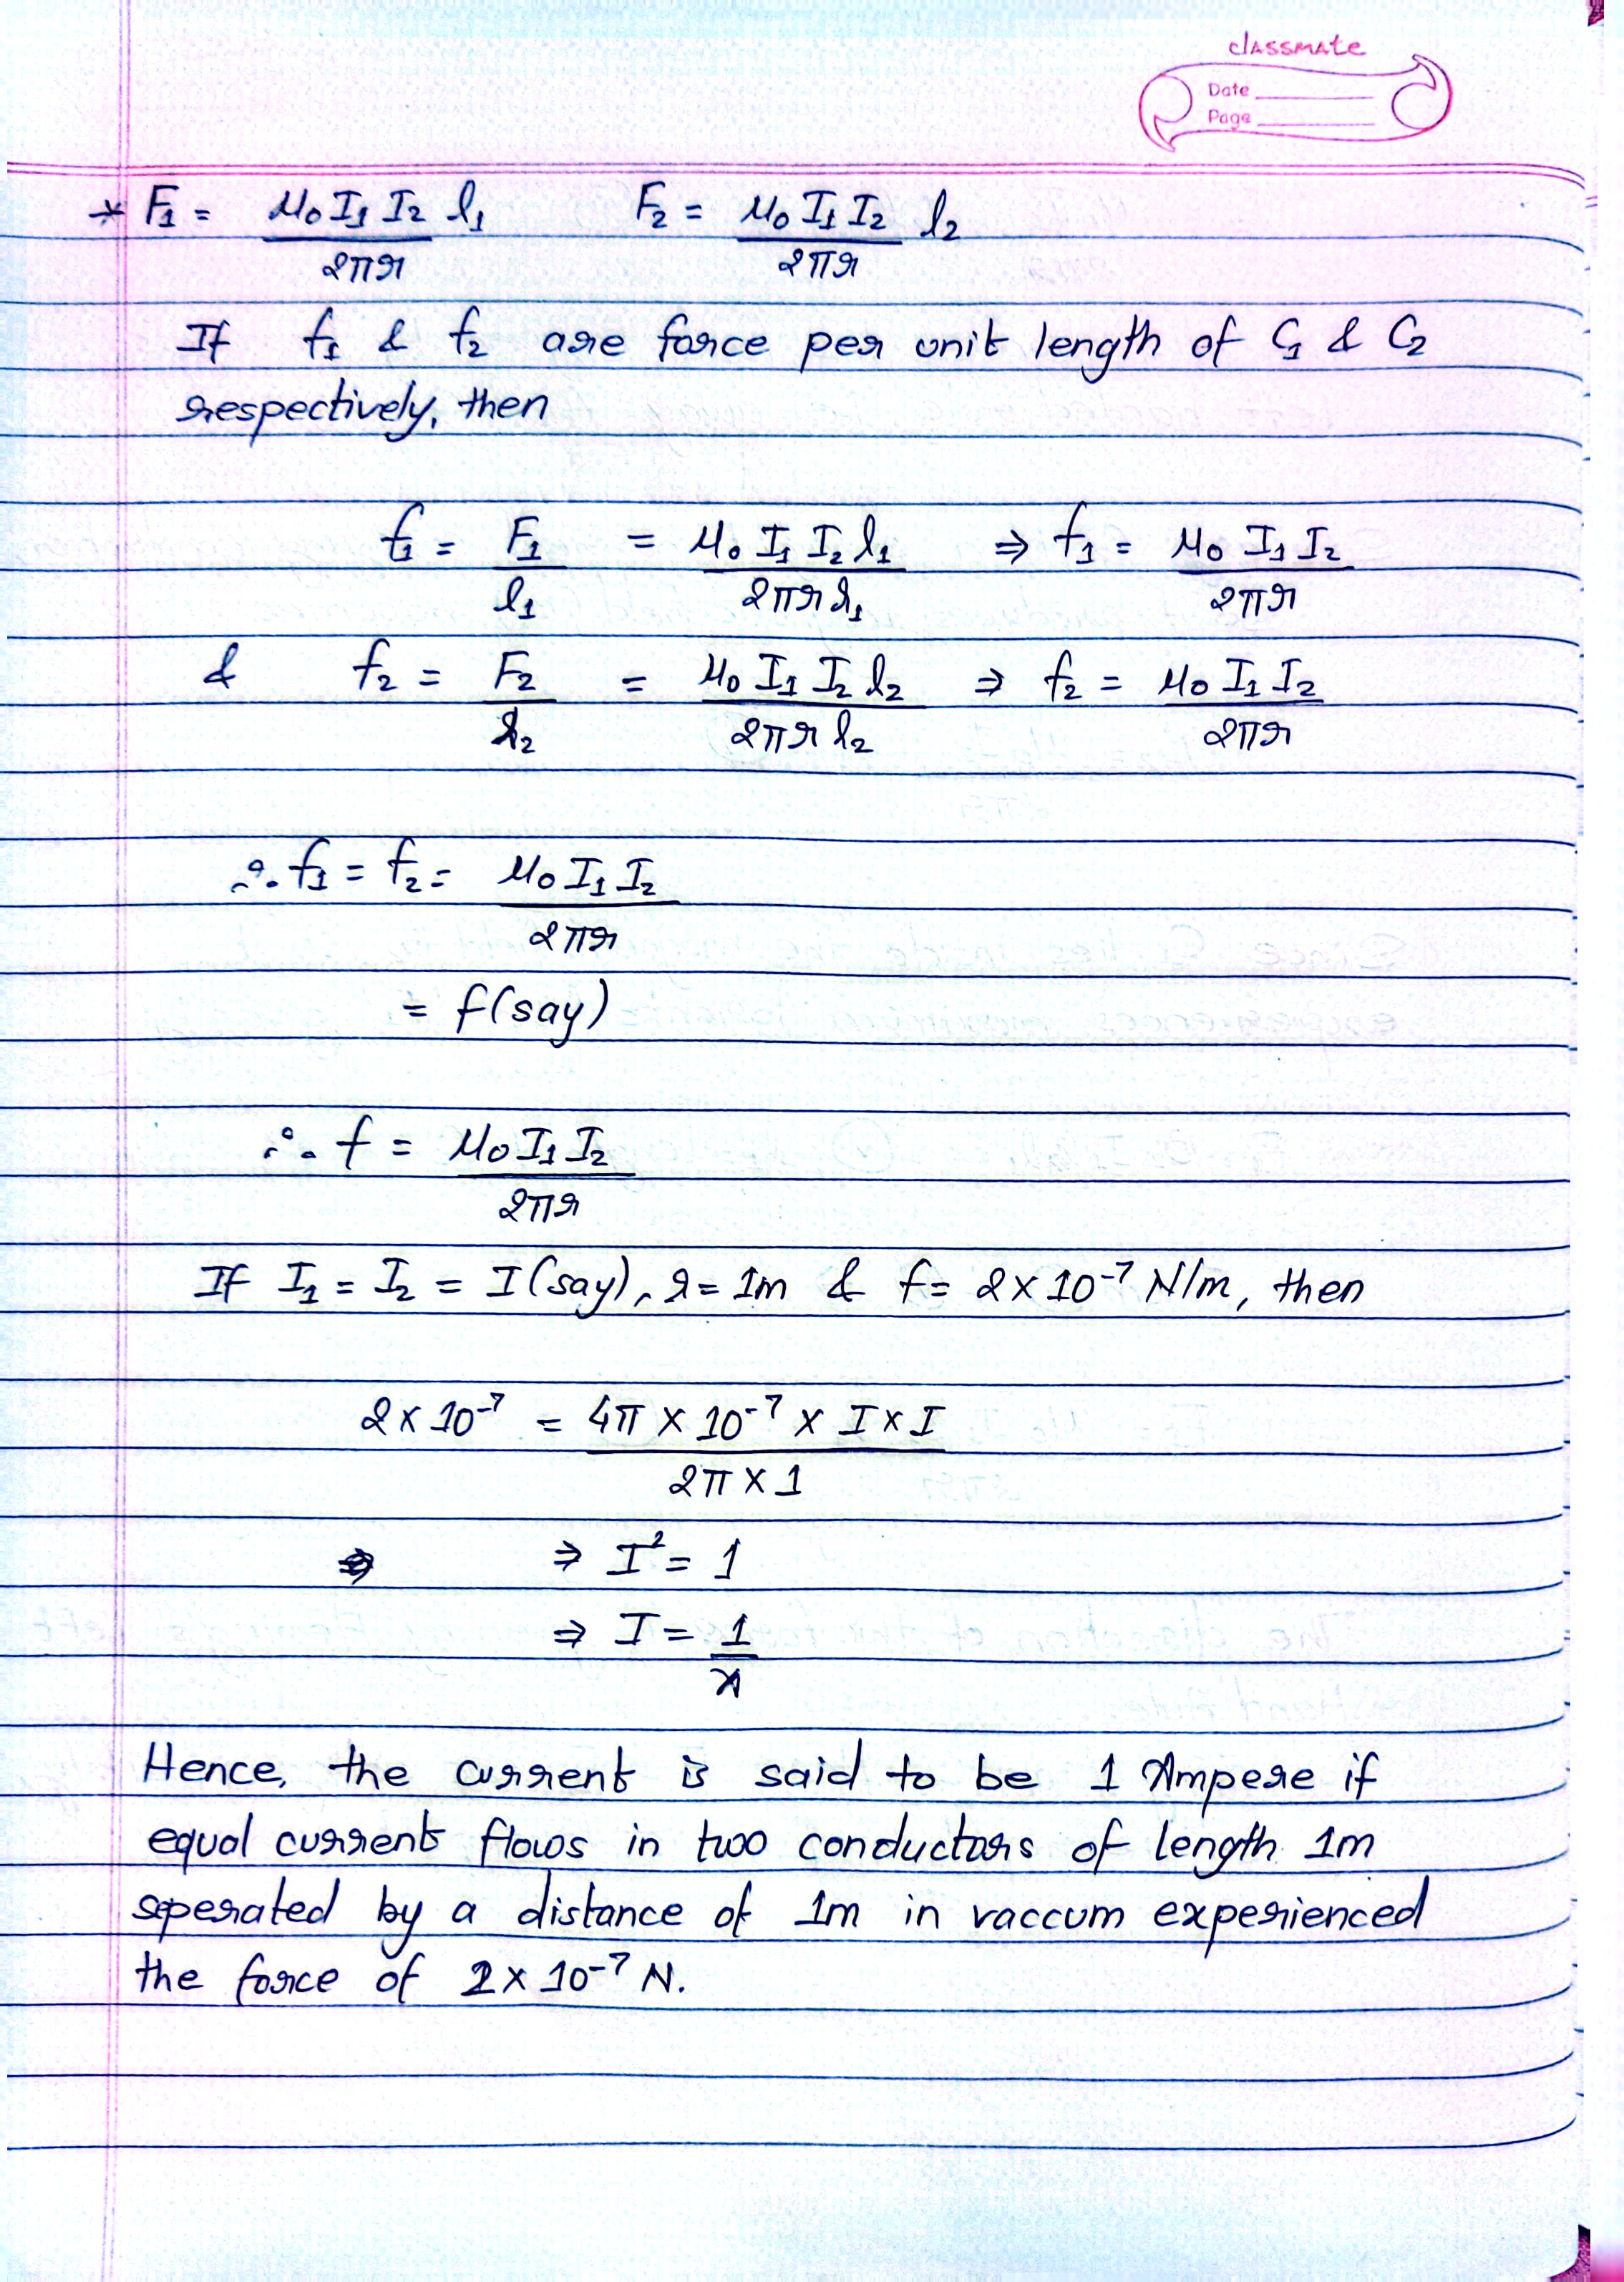 classmate
Date
Page
* F₁ = μ₀ I₁ I₂ l₁ / 2πr    F₂ = μ₀ I₁ I₂ l₂ / 2πr
If f₁ & f₂ are force per unit length of C₁ & C₂
respectively, then
f₁ = F₁ / l₁ = μ₀ I₁ I₂ l₁ / 2πr l₁ ⇒ f₁ = μ₀ I₁ I₂ / 2πr
& f₂ = F₂ / l₂ = μ₀ I₁ I₂ l₂ / 2πr l₂ ⇒ f₂ = μ₀ I₁ I₂ / 2πr
∴ f₁ = f₂ = μ₀ I₁ I₂ / 2πr
= f(say)
∴ f = μ₀ I₁ I₂ / 2πr
If I₁ = I₂ = I(say), r = 1m & f = 2 × 10⁻⁷ N/m, then
2 × 10⁻⁷ = 4π × 10⁻⁷ × I × I / 2π × 1
⇒ I² = 1
⇒ I = 1
Hence, the current is said to be 1 Ampere if
equal current flows in two conductors of length 1m
seperated by a distance of 1m in vaccum experienced
the force of 2 × 10⁻⁷ N.